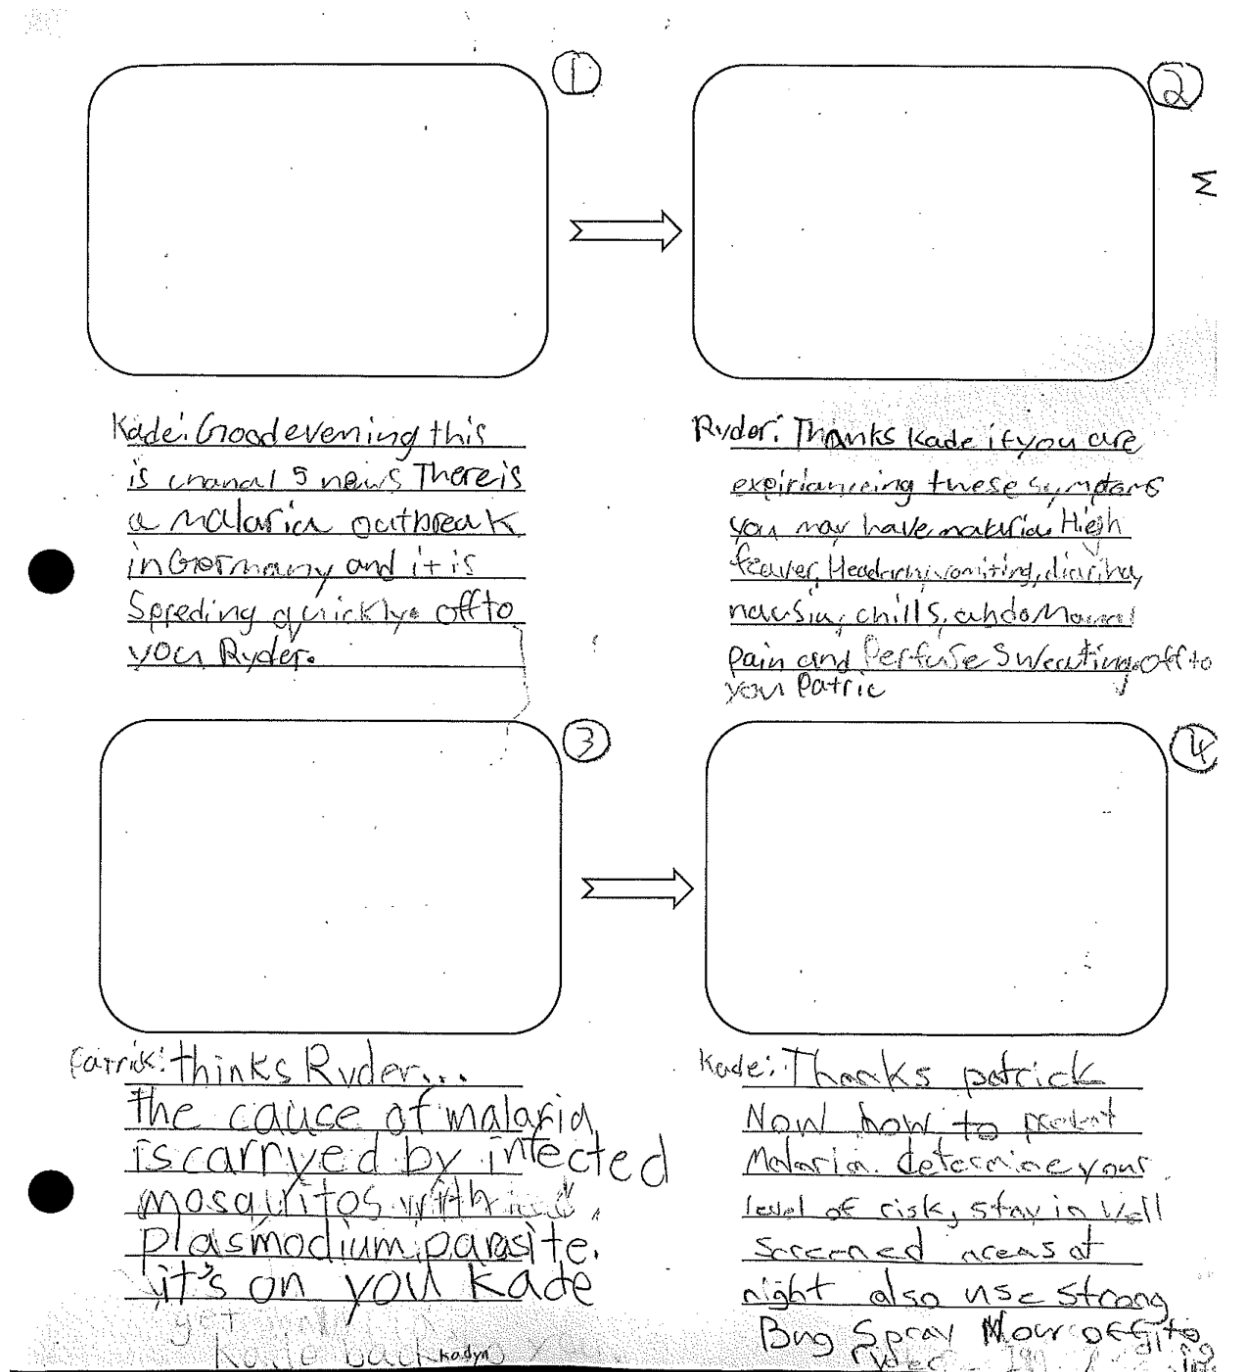 ①
②
M
Kade: Good evening this
is chanal 5 news There is
a malaria outbreak
in Germany and it is
Spreding quickly. off to
you Ryder.
Ryder: Thanks Kade if you are
expiriancing these symptoms
you may have malaria. High
feaver, Headach, vomiting, diariha,
nausia, chills, abdomanal
Pain and Perfuse Sweating. off to
you Patric
③
④
Patrik: thinks Ryder...
The cause of malaria
is carryed by infected
mosquitos with
Plasmodium parasite.
it's on you Kade
get
Kade back Kadyn
Kade: Thanks patrick
Now how to
Malaria. determine your
level of risk, stay in Well
Screened areas at
night also use strong
Bug Spray Now off to
Ryder